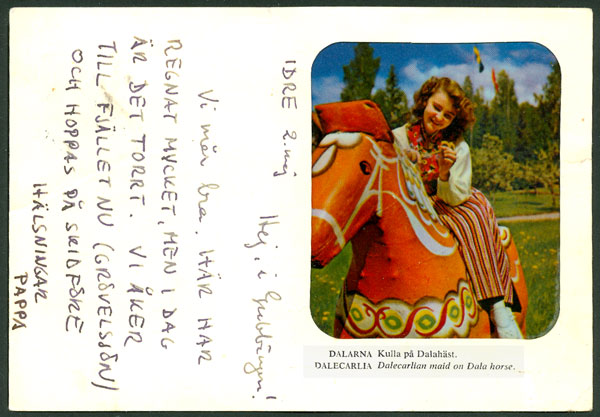 IDRE 2. maj
Hej, i Gubbängen!
Vi mår bra. HÄR HAR
REGNAT MYCKET, MEN I DAG
ÄR DET TORRT. VI ÅKER
TILL FJÄLLET NU (GRÖVELSJÖN)
OCH HOPPAS PÅ SKIDFÖRE
HÄLSNINGAR
PAPPA
DALARNA Kulla på Dalahäst.
DALECARLIA Dalecarlian maid on Dala horse.